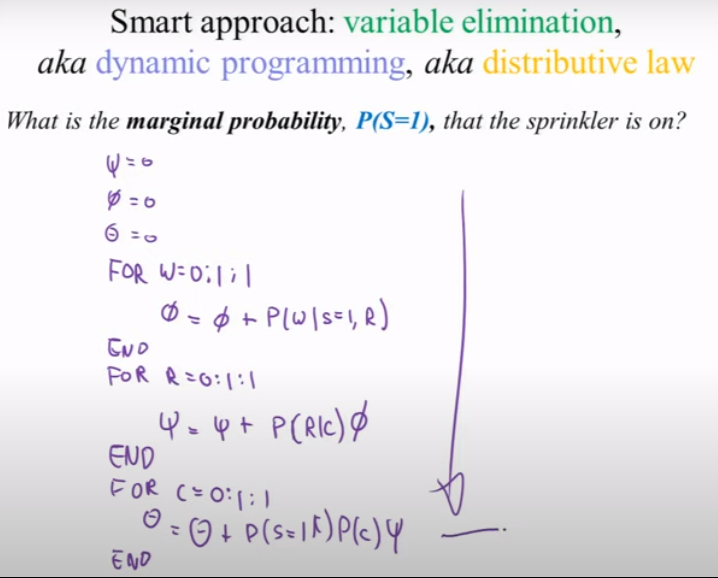 Smart approach: variable elimination,
aka dynamic programming, aka distributive law
What is the marginal probability, P(S=1), that the sprinkler is on?
ψ = 0
ϕ = 0
Θ = 0
FOR W=0:1:1
ϕ = ϕ + P(W|S=1,R)
END
FOR R=0:1:1
ψ = ψ + P(R|C)ϕ
END
FOR C=0:1:1
Θ = Θ + P(S=1|C)P(C)ψ
END